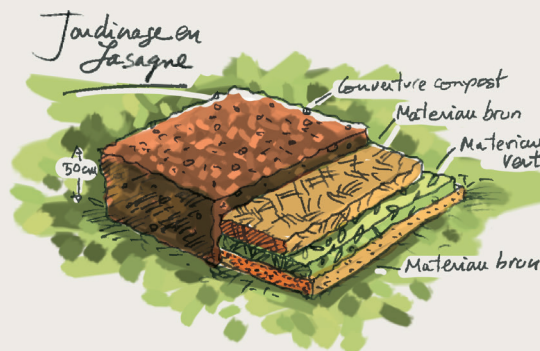 Jardinage en
Lasagne
Couverture compost
Materiau brun
Materiau
vert
50cm
Materiau brun